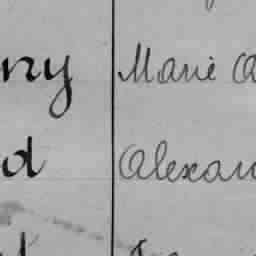 ny Marie A
d Alexan